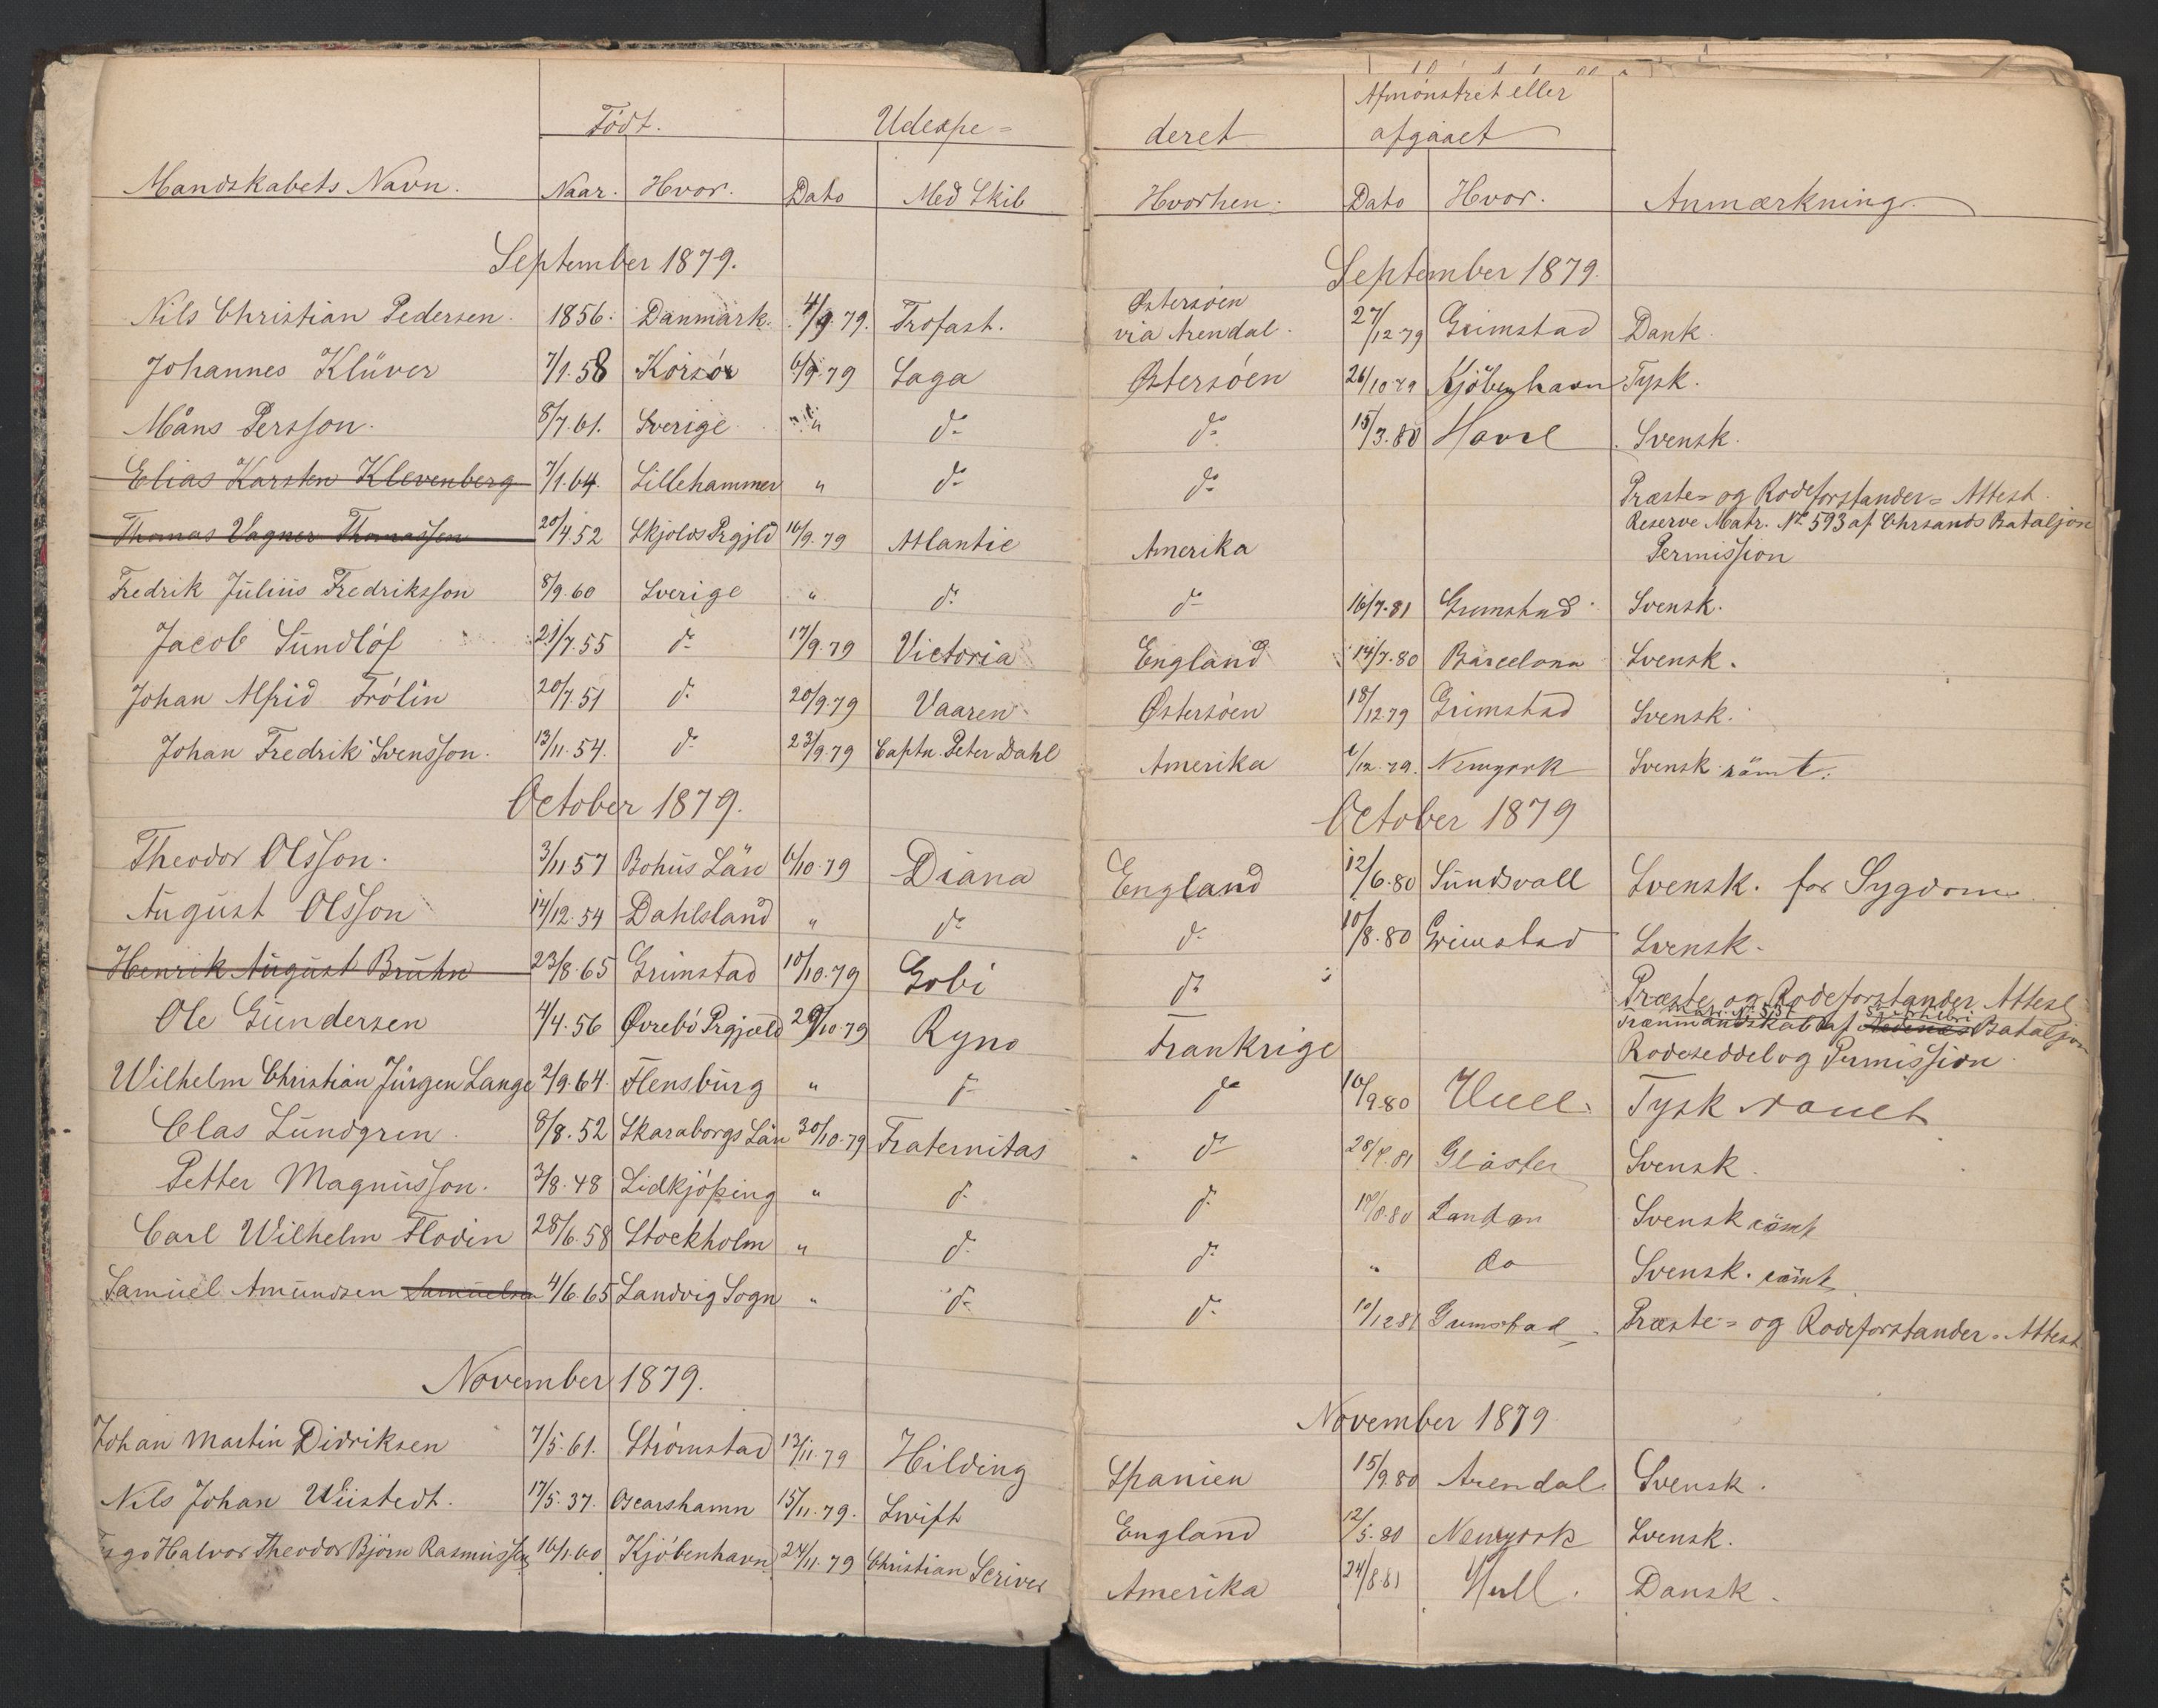 Mandskabets Navn. Födt. Naar. Hvor. Udexpe= Dato Med Skib
deret Hvorhen. Afmönstret eller afgaaet Dato Hvor. Anmærkning.
September 1879. September 1879.
Nils Christian Pedersen. 1856. Danmark. 4/9.79. Trofast. Østersöen via Arendal. 27/12.79 Grimstad Dank.
Johannes Klüver 7/1.58 Korsör 6/9.79 Saga Østersöen 26/10.79 Kjöbenhavn Tysk.
Måns Persson. 8/7.61. Sverige " do do 15/3.80 Svensk.
Elias Karsten Klevenberg 7/1.64. Lillehammer " do do Præste= og Rodeforstander= Attest.
Thomas Vagner Thomassen 20/4 52 Skjolds Prgjld 16/9.79 Atlantic Amerika Reserve Matr. No 593 af Chrsands Bataljon Permission
Fredrik Julius Fredriksson 8/9.60 Sverige " do do 16/7.81 Grimstad Svensk.
Jacob Sundlöf 21/7.55 do 17/9.79 Victoria England 14/7.80 Barcelona Svensk.
Johan Alfrid Frölin 20/7.51 do 20/9.79 Vaaren Østersöen 18/12.79 Grimstad Svensk.
Johan Fredrik Svensson. 13/11.54. do 23/9.79 Captn. Peter Dahl Amerika 6/12.79. Newyork Svensk römt.
October 1879. October 1879
Theodor Olsson. 3/11 57 Bohus Län 6/10.79 Diana England 12/6.80 Sundsvall Svensk. for Sygdom
August Olsson 14/12.54 Dahlsland " do do 10/8.80 Grimstad Svensk.
Henrik August Bruhn 23/8.65 Grimstad 10/10.79 Gobi do Præste og Rodeforstander Attest
Ole Gundersen 4/4.56 Øvrebö Prgjæld 29/10.79 Ryno Frankrige Trænmandskab af Nedenæs Bataljon Rodeseddel og Permission.
Wilhelm Christian Jürgen Lange 2/9.64. Flensburg " do do 16/9.80 Tysk
Clas Lundgren. 8/8.52 Skaraborgs Län 30/10.79 Fraternitas do Svensk.
Petter Magnusson. 3/8.48 Lidkjöping " do do London Svensk römt
Carl Wilhelm Flodin 28/6.58 Stockholm " do do " do Svensk. römt
Samuel Amundsen Samuelsen 4/6.65 Landvig Sogn " do do 10/12 81 Grimstad Præste= og Rodeforstander= Attest.
November 1879. November 1879
Johan Martin Didriksen 7/5.61. Strömstad 13/11.79 Hilding Spanien 15/9.80 Arendal. Svensk.
Nils Johan Wiistedt. 17/5.37. Oscarshamn 15/11.79. Swift England 12/5.80 Newyork Svensk.
Halvor Theodor Björn Rasmussen 16/1.60 Kjöbenhavn 24/11.79 Christian Scriver Amerika 24/8 81 Hull. Dansk.